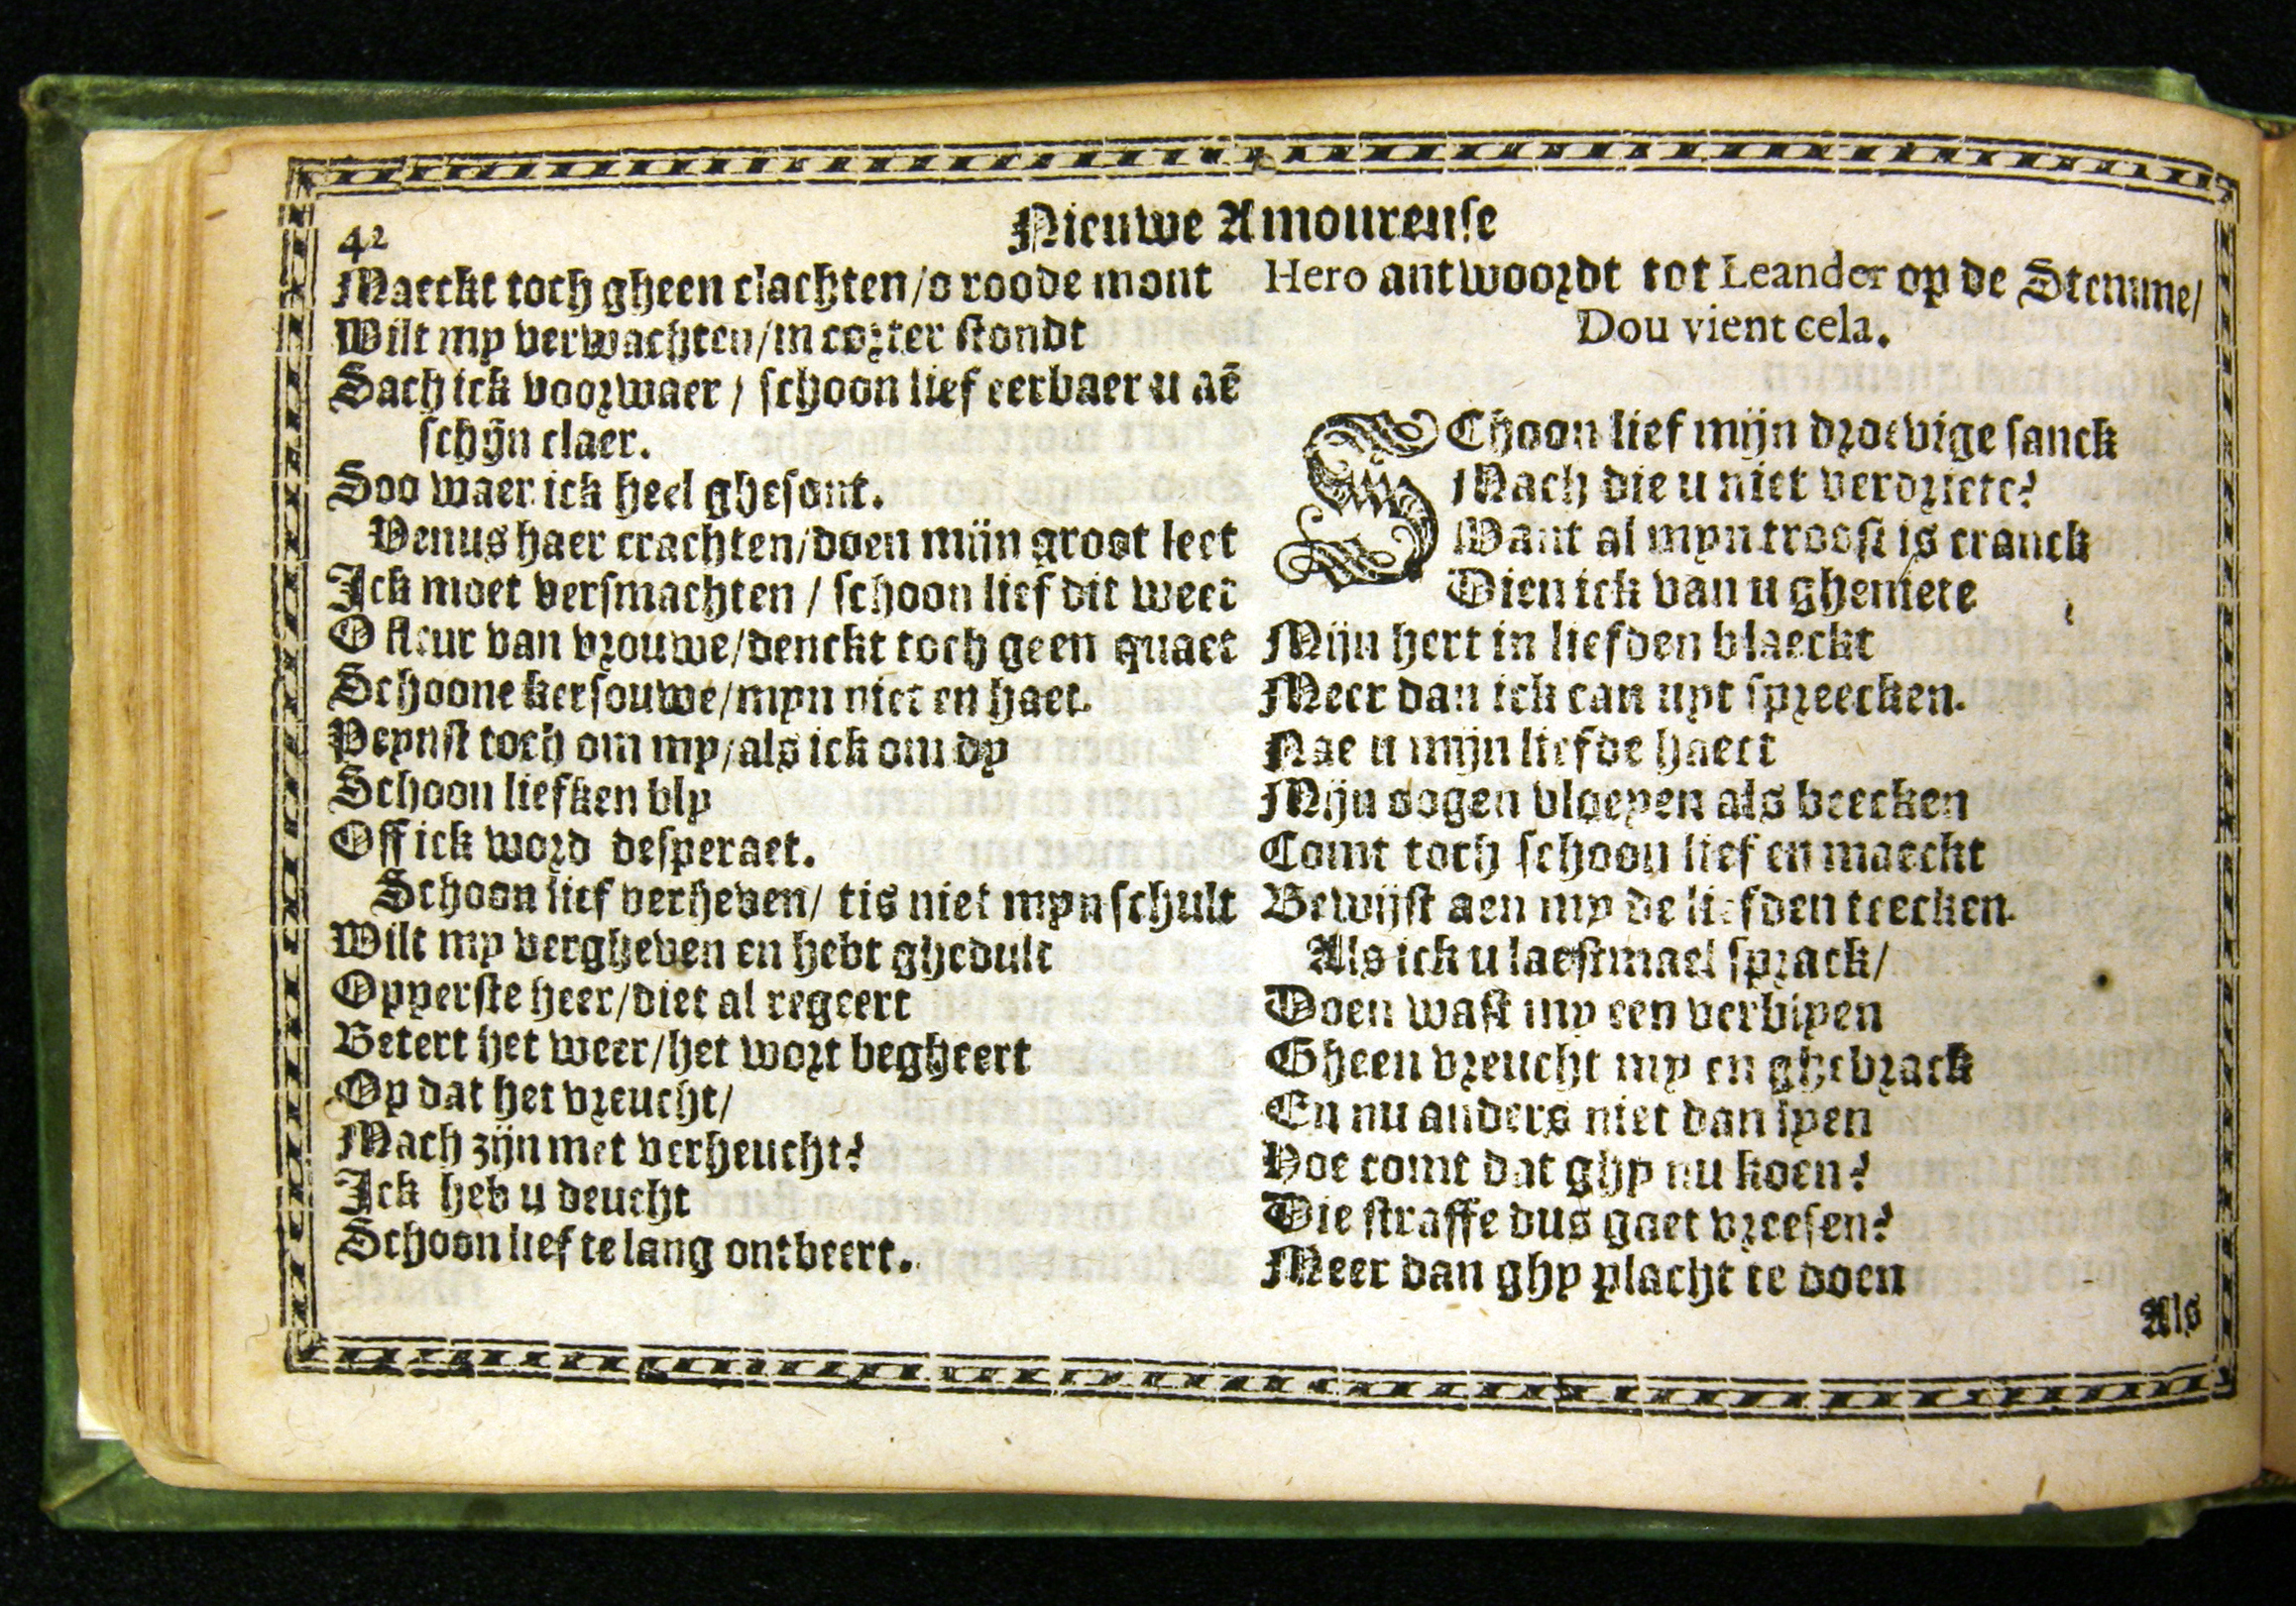 42
Nieuwe Amoureuse
Maeckt toch gheen clachten/o roode mont
Wilt my verwachten/in corter stondt
Sach ick voorwaer / schoon lief eerbaer u aē
schijn claer.
Soo waer ick heel ghesont.
Venus haer crachten/doen mijn groot leet
Ick moet versmachten / schoon lief dit weet
O fleur van vrouwe/denckt toch geen quaet
Schoone kersouwe/myn niet en haet.
Peynst toch om my/als ick om dy
Schoon liefken bly
Off ick word desperaet.
Schoon lief verheven/ tis niet myn schult
Wilt my vergheven en hebt ghedult
Opperste heer/diet al regeert
Betert het weer/het wort begheert
Op dat het vreucht/
Mach zijn met verheucht?
Ick heb u deucht
Schoon lief te lang ontbeert.
Hero antwoordt tot Leander op de Stemme/
Dou vient cela.
SChoon lief mijn droevige sanck
Mach die u niet verdriete?
Want al myn troost is cranck
Dien ick van u gheniete
Mijn hert in liefden blaeckt
Meer dan ick can uyt spreecken.
Nae u mijn liefde haect
Mijn oogen vloeyen als beecken
Comt toch schoon lief en maeckt
Bewijst aen my de liefden teecken.
Als ick u laestmael sprack/
Doen wast my een verblyen
Gheen vreucht my en ghebrack
En nu anders niet dan lyen
Hoe comt dat ghy nu koen?
Die straffe dus gaet vreesen?
Meer dan ghy placht te doen
Als